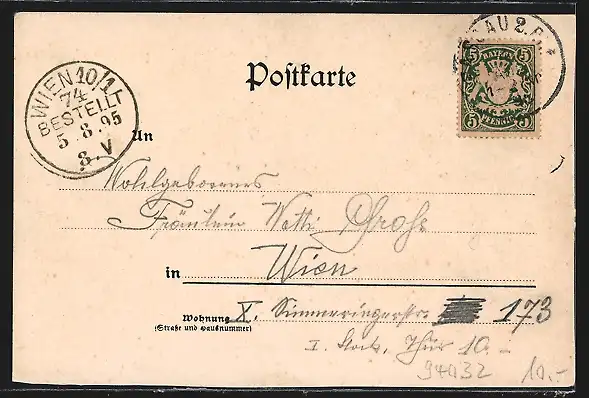 SSAU 2.
WIEN 10/1
74
BESTELLT
5.8.95
8.V
BAYERN
5 5
5 5
PFENNIG
Postkarte
An
Wohlgeborenes
Fräulein Netti Groß
in Wien
Wohnung X. Simmeringerstr. 173
(Straße und Hausnummer)
I. Stock, Thür 10.-
94032 10.-